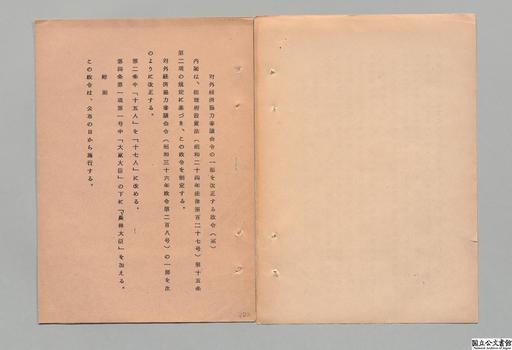 対外経済協力審議会令の一部を改正する政令（案）
内閣は、総理府設置法（昭和二十四年法律第百二十七号）第十五条
第二項の規定に基づき、この政令を制定する。
対外経済協力審議会令（昭和三十六年政令第二百八号）の一部を次
のように改正する。
第二条中「十五人」を「十七人」に改める。
第四条第一項第一号中「大蔵大臣」の下に「農林大臣」を加える。
附則
この政令は、公布の日から施行する。
国立公文書館
National Archives of Japan